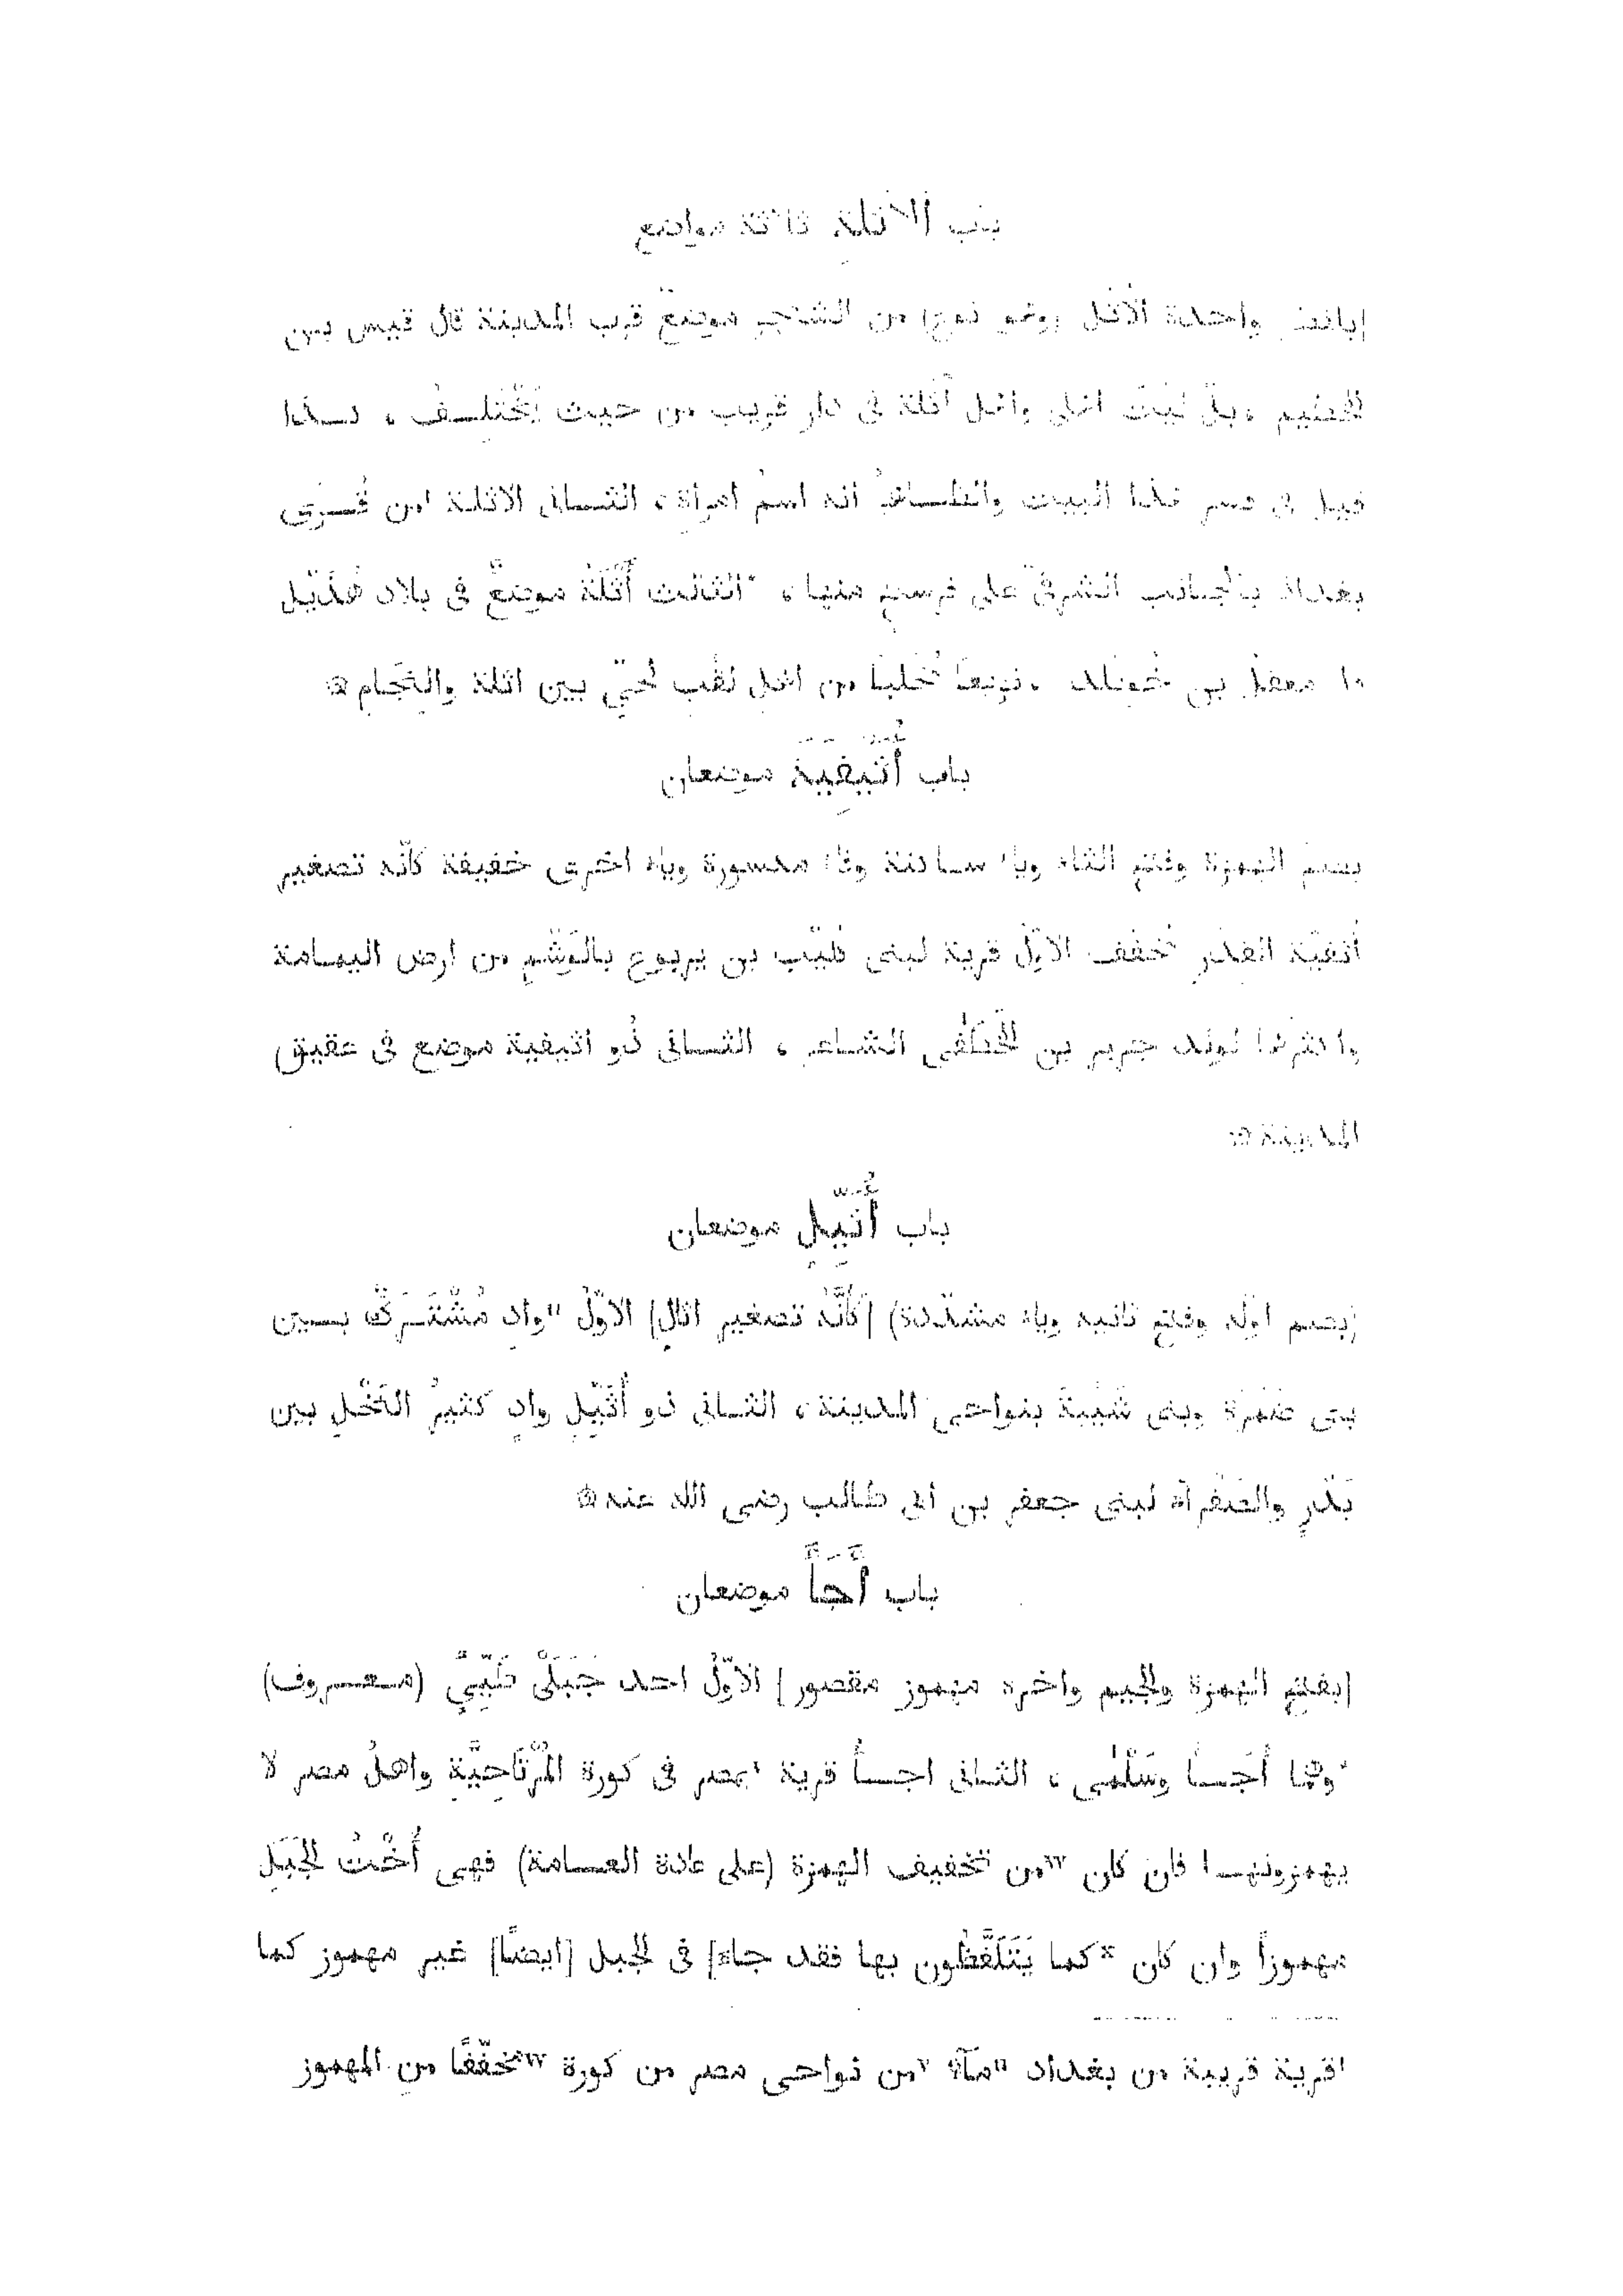 باب الاثلة ثلاثة مواضع
واحدة الأثل (وهو نوع) من الشجر موضع قرب المدينة قال قيس بن
الخطيم ، بل ليت اهلى واهل أثلة فى دار قريب من حيث يُخْتلِف ، كذا
قيل فى هذا البيت والظاهر انه اسمُ امرأة ، الثانى الاثلة ¹من قُرى
بغداد بالجانب الشرقى على فرسخ منها ، الثالث أَثْلَةُ موضعٌ فى بلاد هُذَيْل
معقل بن خُويلد من اهل لقب لحيّ بين اثلة والنجام ۞
باب أُثَيْفِيَةَ موضعان
بضم الهمزة وفتح الثاء وياء ساكنة وفاء مكسورة وياء اخرى خفيفة كانّه تصغير
أثفيّة القدر مخفف الاوّل قرية لبنى كليب بن يربوع بالوَشْم من ارض اليمامة
واكثرها لولد جرير بن الخَطَفَى الشاعر ، الثانى ذو اثيفية موضع فى عقيق
المدينة ۞
باب أُثَيِّلٍ موضعان
(بضم اوله وفتح ثانيه وياء مشدّدة) [كأنّه تصغير اثال] الاوّلُ "وادٍ مُشْتَرَكٌ بين
بنى ضَمْرة وبنى شَيْبةَ بنواحى المدينة ، الثانى ذو أُثَيِّلٍ وادٍ كثيرُ النَخْلِ بين
بَدْرٍ والصَفْرآء لبنى جعفر بن أبى طالب رضى الله عنه ۞
باب أَجَأَ موضعان
[بفتح الهمزة والجيم واخره مهموز مقصور] الاوّلُ احد جَبَلَىْ طَيّئٍ (معروف)
وهُما أَجَأ وسَلْمَى ، الثانى اجأُ قرية ᵛبمصر فى كورة المُرْتَاحِيَّةِ واهلُ مصر لا
يهمزونها فان كان ʷمن تخفيف الهمزة (على عادة العامة) فهى أُخْتُ لجَبَلِ
مهموزاً وان كان ˣكما يَتَلَفَّظُون بها فقد جاء] فى الجبل [ايضًا] غير مهموز كما
¹قرية قريبة من بغداد "مَآء ᵛمن نواحى مصر من كورة ʷمخفّفًا من المهموز